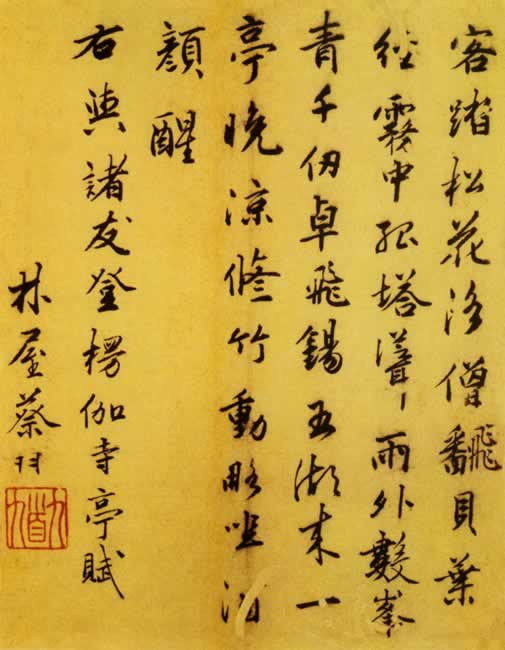 客踏松花洛僧飜貝葉
經霧中孤塔聳雨外數峯
青千仞卓飛錫五湖來一
亭晚涼脩竹動略吹酒
顏醒
右與諸友登楞伽寺亭賦
林屋蔡羽